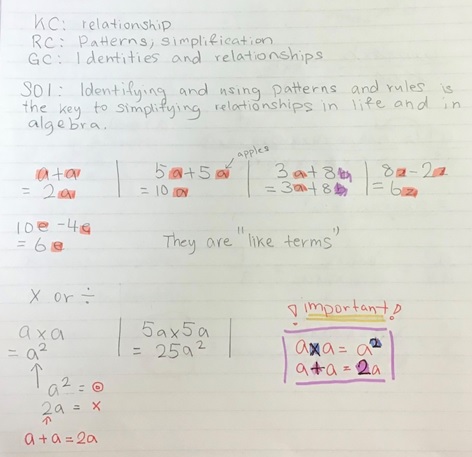 KC: relationship
RC: Patterns, simplification
GC: Identities and relationships
SOI: Identifying and using patterns and rules is
the key to simplifying relationships in life and in
algebra.
apples
a+a | 5a+5a | 3a+8b | 8z-2z
= 2a | = 10a | = 3a+8b | = 6z
10e-4e
= 6e They are "like terms"
x or ÷
! important !
axa | 5ax5a
= a² | = 25a²
axa = a²
a+a = 2a
a² = ◎
2a = x
a+a=2a